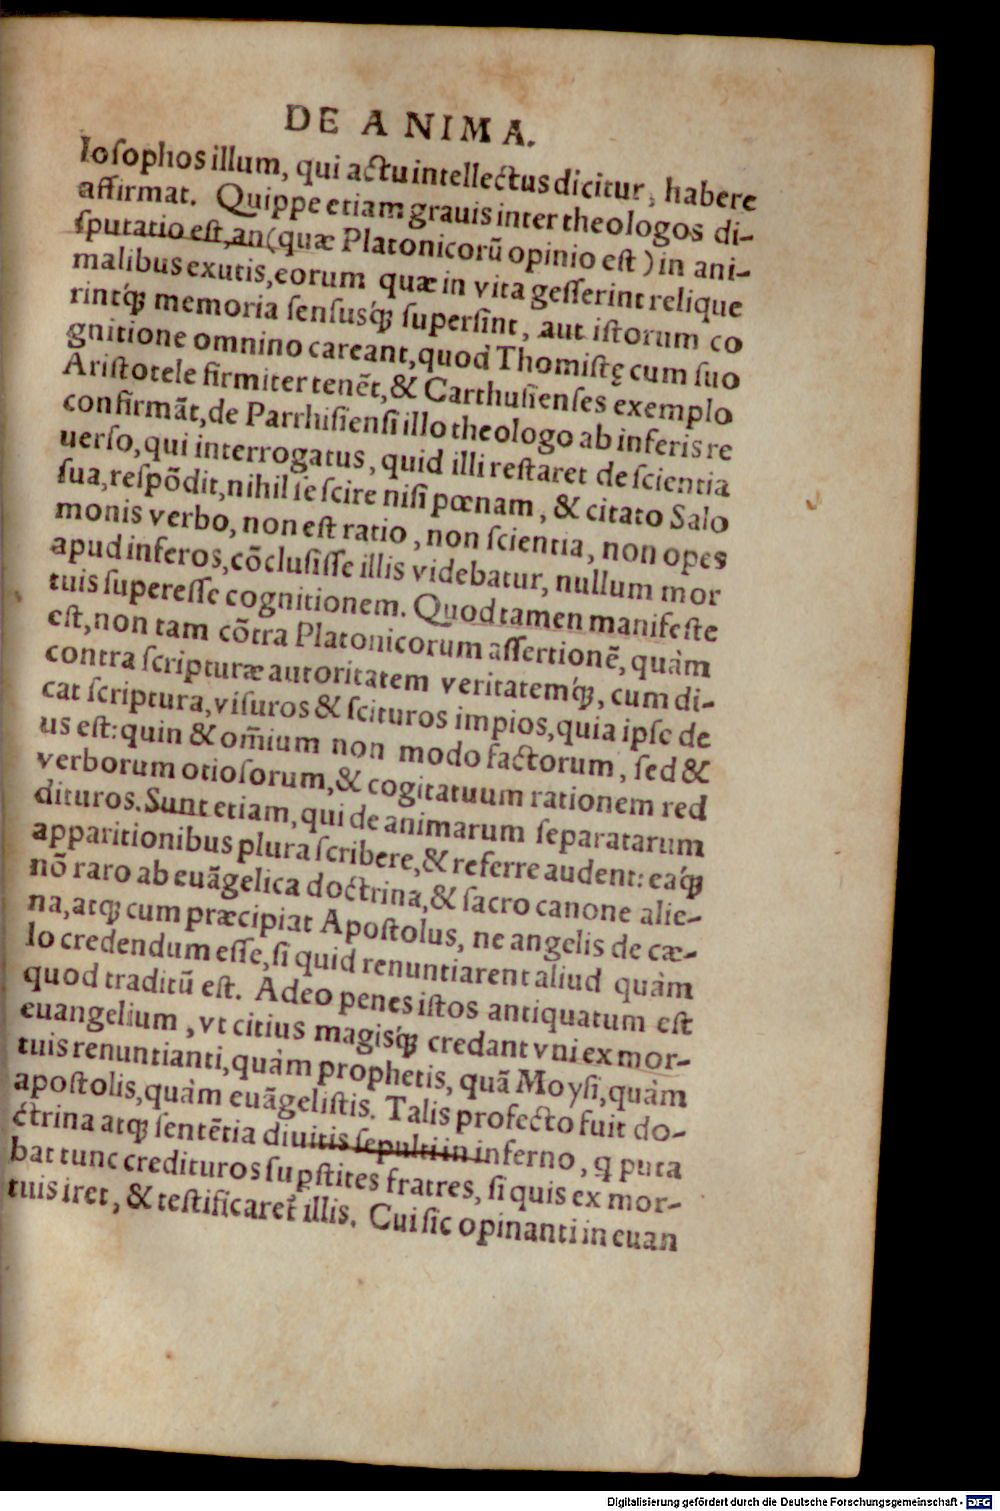 DE ANIMA.
losophos illum, qui actu intellectus dicitur, habere
affirmat. Quippe etiam grauis inter theologos di-
sputatio est, an (quæ Platonicorū opinio est) in ani-
malibus exutis, eorum quæ in vita gesserint relique
rintq́ꝫ memoria sensusq́ꝫ supersint, aut istorum co
gnitione omnino careant, quod Thomistę cum suo
Aristotele firmiter tenēt, & Carthusienses exemplo
confirmāt, de Parrhisiensi illo theologo ab inferis re
uerso, qui interrogatus, quid illi restaret de scientia
sua, respōdit, nihil se scire nisi pœnam, & citato Salo
monis verbo, non est ratio, non scientia, non opes
apud inferos, cōclusisse illis videbatur, nullum mor
tuis superesse cognitionem. Quod tamen manifeste
est, non tam cōtra Platonicorum assertionē, quàm
contra scripturæ autoritatem veritatemq́ꝫ, cum di-
cat scriptura, visuros & scituros impios, quia ipse de
us est: quin & om̄ium non modo factorum, sed &
verborum otiosorum, & cogitatuum rationem red
dituros. Sunt etiam, qui de animarum separatarum
apparitionibus plura scribere, & referre audent: eaq́ꝫ
nō raro ab euāgelica doctrina, & sacro canone alie-
na, atqꝫ cum præcipiat Apostolus, ne angelis de cæ-
lo credendum esse, si quid renuntiarent aliud quàm
quod traditū est. Adeo penes istos antiquatum est
euangelium, vt citius magisq́ꝫ credant vni ex mor-
tuis renuntianti, quàm prophetis, quā Moysi, quàm
apostolis, quàm euāgelistis. Talis profecto fuit do-
ctrina atqꝫ sentētia diuitis sepulti in inferno, ꝗ puta
bat tunc credituros suꝑstites fratres, si quis ex mor-
tuis iret, & testificaret᷑ illis. Cui sic opinanti in euan
Digitalisierung gefördert durch die Deutsche Forschungsgemeinschaft - DFG